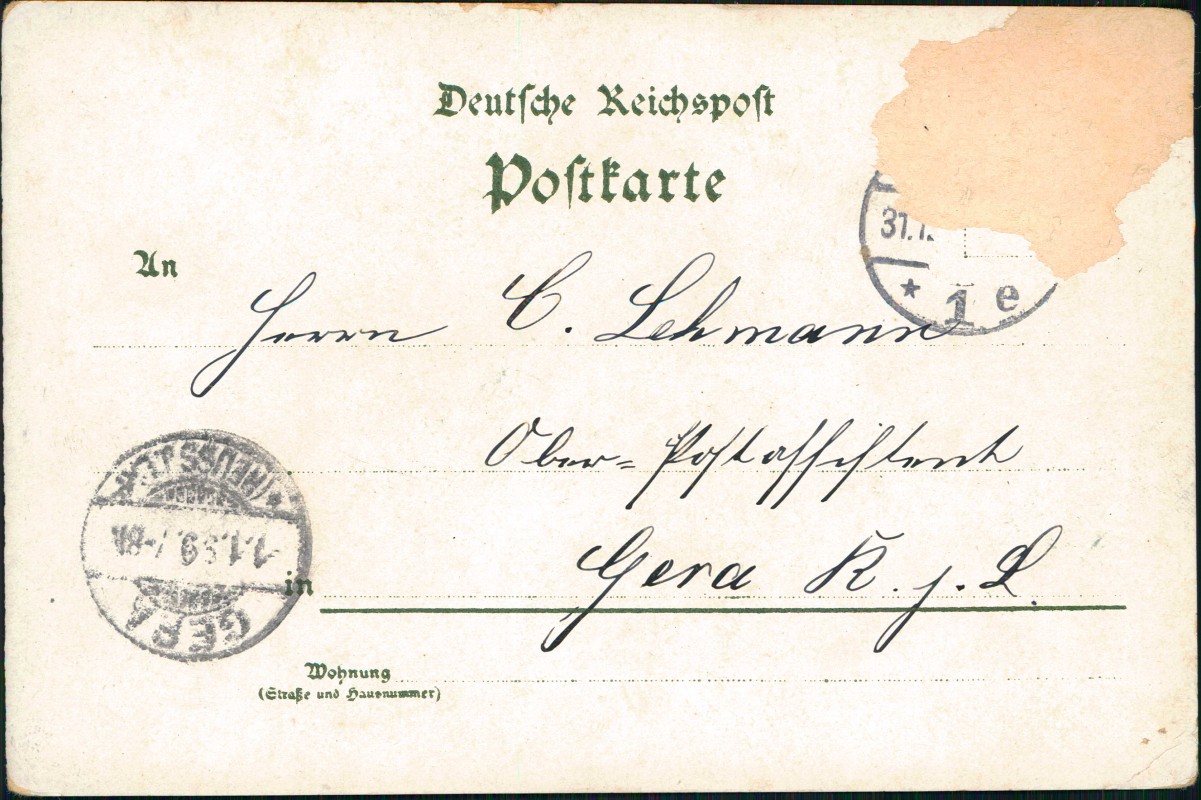 Deutsche Reichspost
Postkarte
31.1.
* 1 e
An
Herrn C. Lehmann
Ober-Postassistent
in Gera R. j. L.
(REUSS J.L.)
1.1.99. 7-8N.
GERA
Wohnung
(Straße und Hausnummer)